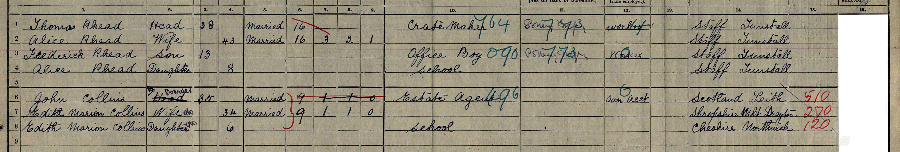 1 Thomas Rhead Head 38 Married 16 Crate Maker 764 Worker Staff Tunstall
2 Alice Rhead Wife 43 Married 16 3 2 1 Staff Tunstall
3 Frederick Rhead Son 13 Office Boy 090 Worker Staff Tunstall
4 Alice Rhead Daughter 8 School Staff Tunstall
6 John Collins Boarder Head 35 Married 9 1 1 0 Estate Agent 496 Own Acct Scotland Leith 510
7 Edith Marion Collins Wife do 34 Married 9 1 1 0 Shropshire Mkt Drayton 270
8 Edith Marion Collins Daughter do 6 School Cheshire Northwich 120
9